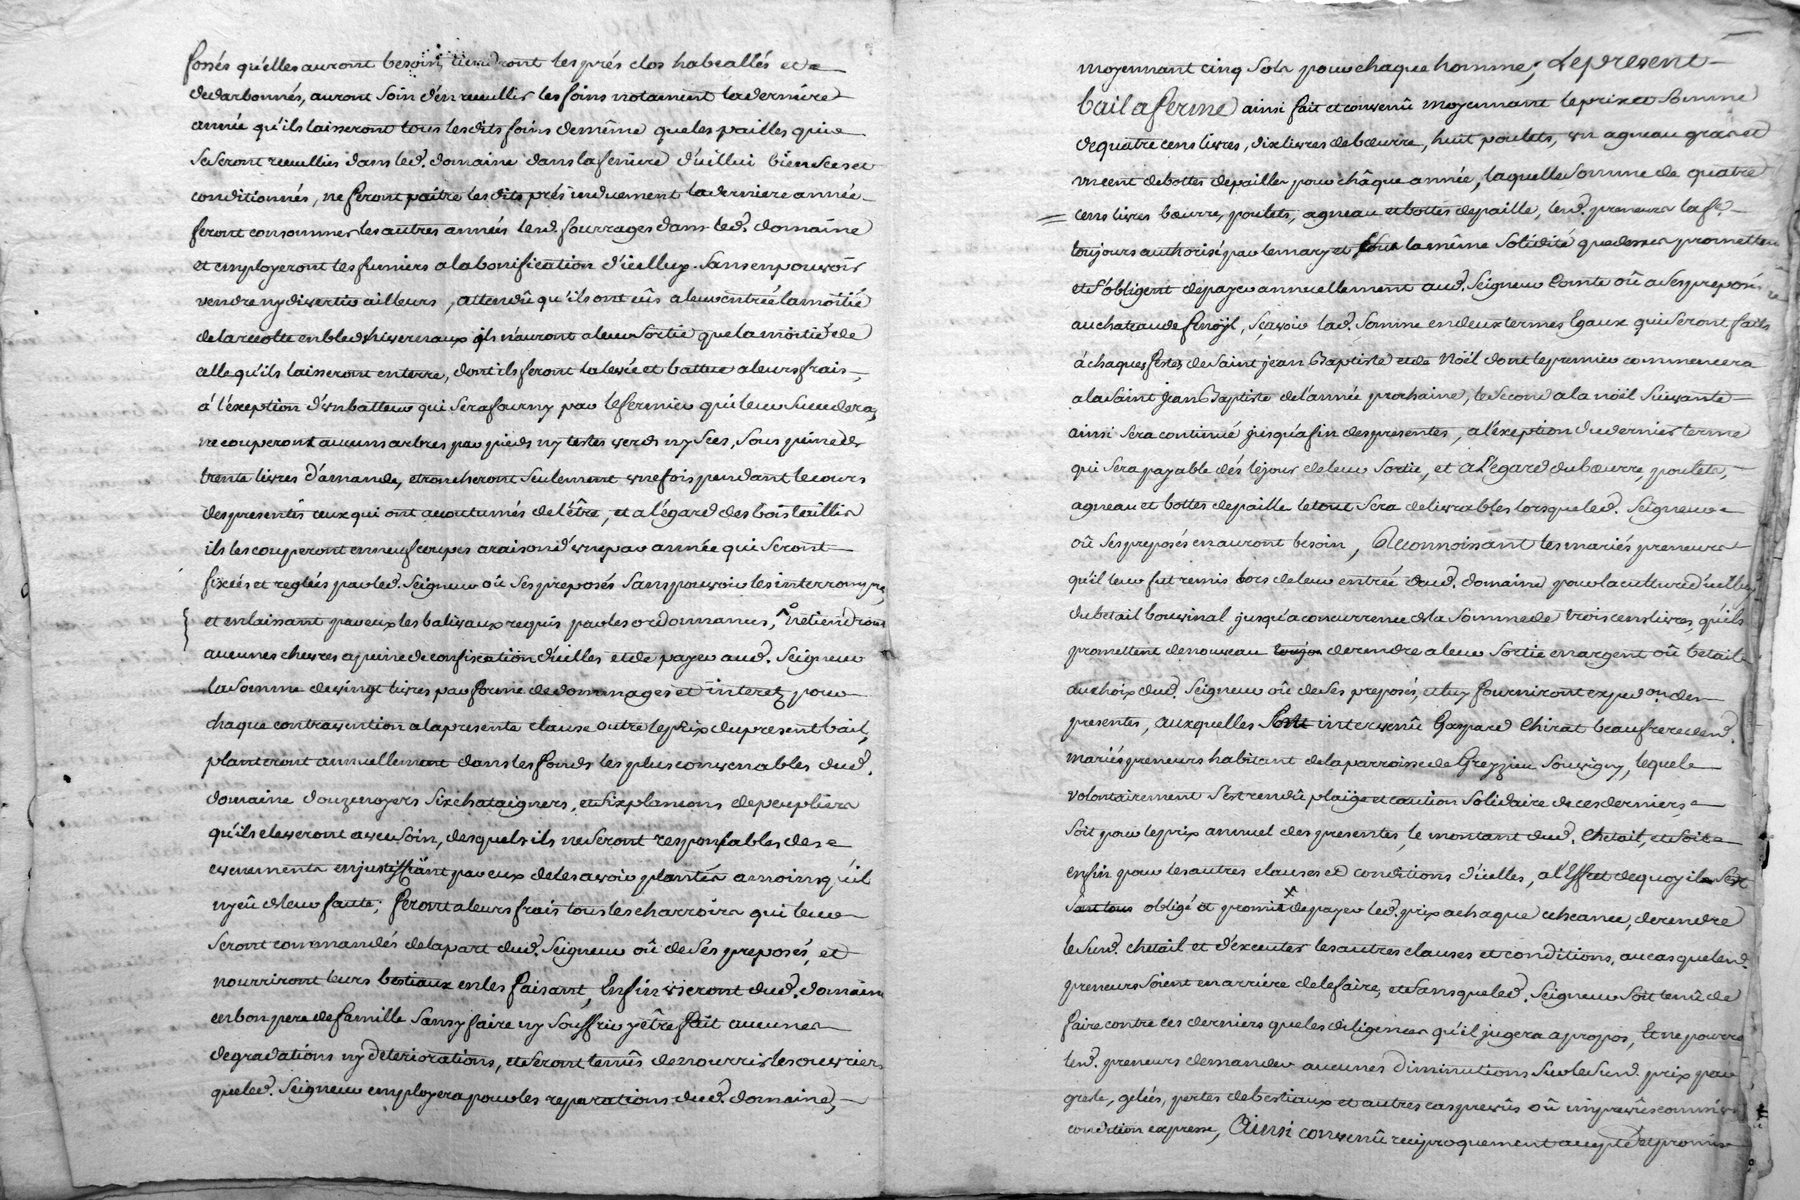 fossés qu'elles auront besoin, tiendront les prés clos habeallés et
dedarbonnés, auront soin d'en recuellir les foins notament la derniere
année qu'ils laisseront tous lesdits foins de même que les pailles qui
se seront recuellies dans led. domaine dans la feniere d'icellui bien secs et
conditionnés, ne feront paître lesdits prés induement la derniere année
feront consommer les autres années lesd. fourrages dans led. domaine
et employeront les fumiers a la bonification d'icelluy. Sans en pouvoir
vendre ny divertir ailleurs, attendû qu'ils ont eûs a leur entrée la moitié
de la recolte en bled hivernaux ils n'auront a leur sortie que la moitié de
celle qu'ils laisseront en terre, dont ils feront la levée et battue a leurs frais,
á l'éxeption d'un batteur qui sera fourny par le fermier qui leur succedera,
ne couperont aucuns arbres par pieds ny testes verds ny secs, sous peine de
trente livres d'amande, etroncheront seulement une fois pendant le cours
des presentes ceux qui ont accoutumés de l'être, et a l'égard des bois taillis
ils les couperont en neuf coupes a raison d'une par année qui seront
fixées et reglées par led. Seigneur oû ses preposés sans pouvoir les interrompre,
et en laissant par eux les baliveaux requis par les ordonnances, ne tiendront
aucunes chevres a peine de confiscation d'icelles et de payer aud. Seigneur
la somme de vingt livres par forme de dommages et interetz pour
chaque contravention a la presente clause outre le prix du present bail,
planteront annuellement dans les fonds les plus convenables dud.
domaine douze noyers six chataigners, et six plansons de peupliers
qu'ils eleveront avec soin, desquels ils ne seront responsables des
evenements en justiffiant par eux de les avoir plantés a moins qu'il
n'y eû de leur faute; feront a leurs frais tous les charroirs qui leur
seront commandés de la part dud. Seigneur oû de ses preposés, et
nourriront leurs bestiaux en les faisant, Enfin useront dud. domaine
en bon pere de famille sans y faire ny souffrir y être fait aucunes
degradations ny deteriorations, et seront tenûs de nourrir les ouvriers
que led. Seigneur employera pour les reparations dud. domaine,
moyennant cinq sols pour chaque homme; Le present
bail a ferme ainsi fait et convenû moyennant le prix et somme
de quatre cens livres, dix livres de bœurre, huit poulets, un agneau gras et
un cent de bottes de pailles pour châque année, laquelle somme de quatre
cens livres bœurre, poulets, agneau et bottes de paille, lesd. preneurs la fe.
toujours authorisé par le mary et sous la même solidité que dessus promettent
et s'obligent de payer annuellement aud. Seigneur Comte oû a ses preposés
au chateau de fenoÿl, sçavoir lad. somme en deux termes Egaux qui seront faits
á chaques festes de Saint jean Baptiste et de Noël dont le premier commencera
a la Saint jean Baptiste de l'année prochaine, le second a la noël suivante
ainsi sera continué jusqu'a fin des presentes, a l'éxeption du dernier terme
qui sera payable dés le jour de leur sortie, et a l'Egard du bœurre, poulets,
agneau et bottes de paille le tout sera delivrables lorsque led. Seigneur
oû ses preposés en auront besoin, Reconnoissant les mariés preneurs
qu'il leur fut remis lors de leur entrée aud. domaine pour la culture d'icelluy
du betail bouvinal jusqu'a concurrence de la somme de trois cens livres, qu'ils
promettent de nouveau de rendre a leur sortie en argent oû betail
au choix dud. Seigneur oû de ses preposés, et luy fourniront expedon des
presentes, auxquelles est intervenû Gaspard Chirat beaufrere desd.
mariés preneurs habitant de la parroisse de Grezzieu Souvigny, lequel
volontairement s'est rendû plaige et caution solidaire de ces derniers,
soit pour le prix annuel des presentes, le montant dud. Chetail, et soit
enfin pour les autres clauses et conditions d'icelles, a l'Effet de quoy il s'est
obligé et promis de payer led. prix a chaque echeance, de rendre
le susd. chetail et d'éxecuter les autres clauses et conditions, au cas que lesd.
preneurs soient en arriére de le faire, et sans que led. Seigneur soit tenû de
faire contre ces derniers que les diligences qu'il jugera a propos, Et ne pourront
lesd. preneurs demander aucunes Diminutions sur le susd. prix par
gresle, gelées, pertes de bestiaux et autres cas prevûs oû imprevûs comme
condition expresse, Ainsi convenû reciproquement accepté et promis